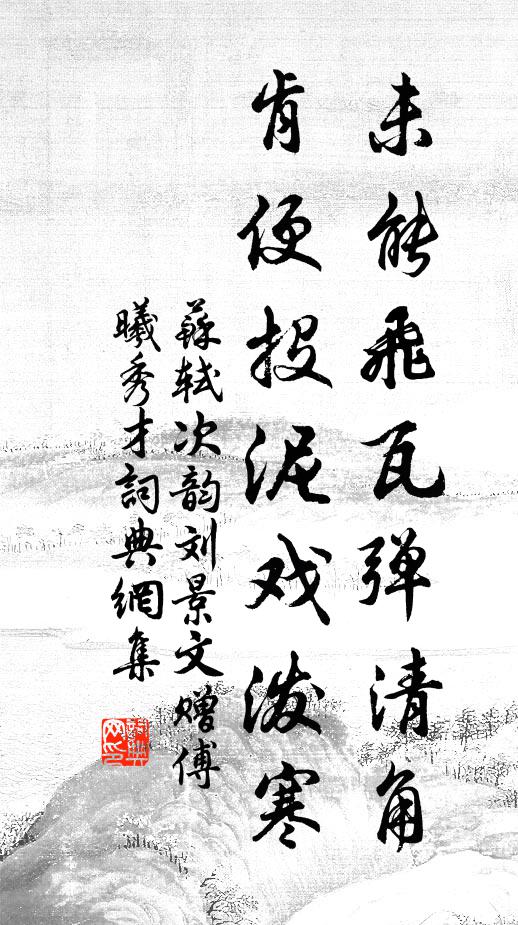 未能飞瓦弹清角
肯便投泥戏泼寒
蘇軾次韵刘景文赠傅
曦秀才詞典網集